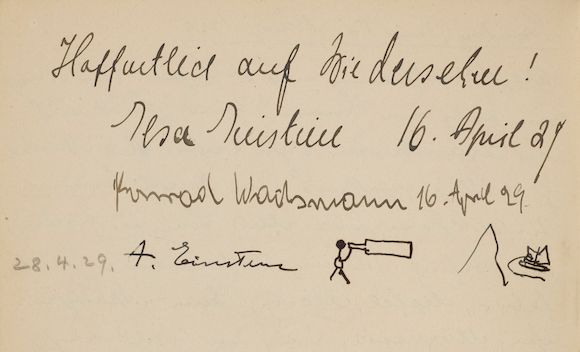 Hoffentlich auf Wiedersehn!
Elsa Einstein 16. April 29
Konrad Wachsmann 16. April 29.
28.4.29. A. Einstein